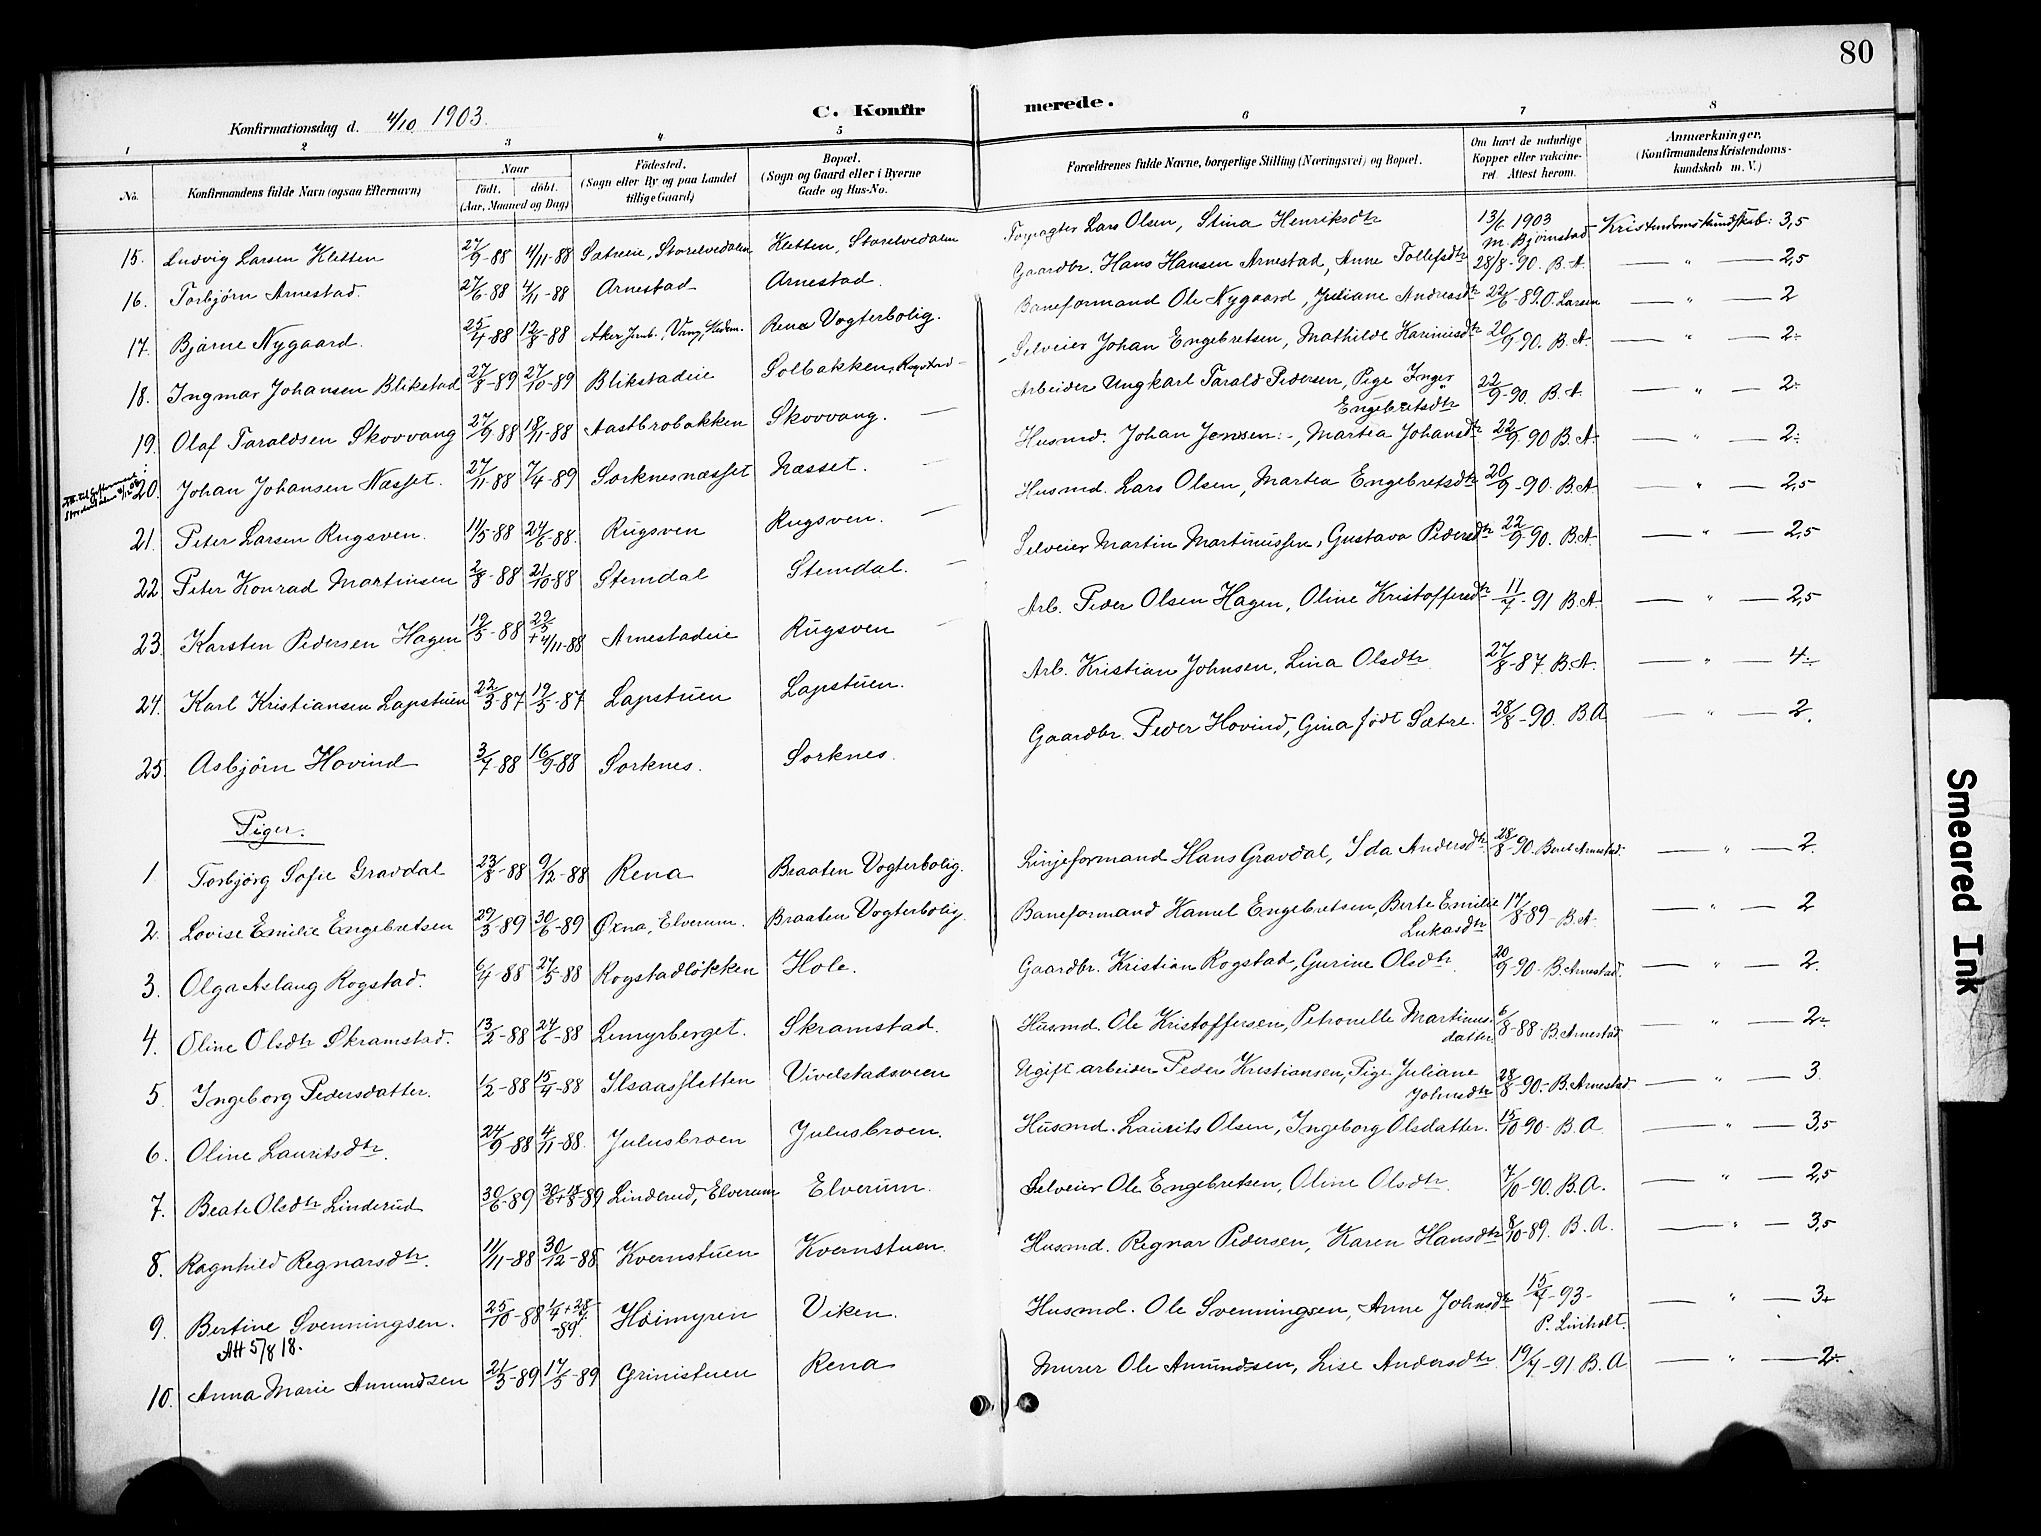 80
Konfirmationsdag d. 4/10 1903.
C. Konfir merede.
1 2 3 4 5 6 7 8
No.
Konfirmandens fulde Navn (ogsaa Efternavn)
Naar
født. døbt.
(Aar, Maaned og Dag)
Fødested.
(Sogn eller By og paa Landet
tillige Gaard)
Bopæl.
(Sogn og Gaard eller i Byerne
Gade og Hus-No.
Forældrenes fulde Navne, borgerlige Stilling (Næringsvei) og Bopæl.
Om havt de naturlige
Kopper eller vakcine-
ret. Attest herom.
Anmærkninger,
(Konfirmandens Kristendoms-
kundskab m. V.)
15. Ludvig Larsen Kletten 27/9-88 4/11-88 Sætreie, Storelvedalen Kletten, Storelvedalen Forpagter Lars Olsen, Stina Henriksdtr 13/6 1903 M. Bjørnstad Kristendomskundskab: 3,5
16. Torbjørn Arnestad. 27/6-88 4/11-88 Arnestad Arnestad. Gaardbr. Hans Hansen Arnestad, Anne Tollefsdtr 28/8-90. B.A. — " — 2,5
17. Bjarne Nygaard. 25/4-88 12/8-88 Aker Jmb., Vang, Hedm. Rena Vogterbolig. Baneformand Ole Nygaard, Juliane Andreasdtr 22/6-89. O. Larsen — " — 2
18. Ingmar Johansen Blikstad 27/8-89 27/10-89 Blikstadeie Solbakken, Rogstad — Selveier Johan Engebretsen, Mathilde Karinusdtr 20/9-90. B.A. — " — 2÷
19. Olaf Taraldsen Skovvang 27/9-88 18/11-88 Aastbrobakken Skovvang. — Arbeider Ungkarl Tarald Pedersen, Pige Inger Engebretsdtr 22/9-90 B.A. — " — 2÷
20. Johan Johansen Næsset. 27/11-88 7/4-89 Sorknesnæsset Næsset. — Husmd. Johan Jensen, Martea Johansdtr 22/9-90 B.A. — " — 2÷
21. Peter Larsen Rugsven. 11/5-88 24/6-88. Rugsven Rugsven. — Husmd. Lars Olsen, Martea Engebretsdtr 20/9-90. B.A. — " — 2,5
22 Peter Konrad Martinsen 2/8-88 21/10-88 Stemdal Stemdal. — Selveier Martin Martinussen, Gustava Pedersdtr 22/9-90. B.A. — " — 2,5
23. Karsten Pedersen Hagen 19/5-88 22/5 + 4/11-88 Arnestadeie Rugsven — Arb. Peder Olsen Hagen, Oline Kristoffersdtr 11/7-91 B.A. — " — 2,5
24. Karl Kristiansen Lapstuen 22/3-87 19/5-87 Lapstuen Lapstuen. Arb. Kristian Johnsen, Lina Olsdtr 27/8-87. B.A. — " — 4÷
25. Asbjørn Hovind 3/7-88 16/9-88 Sorknes. Sorknes. Gaardbr. Peder Hovind, Gina født Sætre. 28/8-90. B.A — " — 2.
Piger.
1 Torbjørg Sofie Gravdal 23/8-88 9/12-88 Rena Braaten Vogterbolig. Linjeformand Hans Gravdal, Ida Andersdtr 28/8-90. Beret Arnestad. — " — 2.
2. Lovise Emilie Engebretsen 29/3-89 30/6-89 Øxna, Elverum. Braaten Vogterbolig. Baneformand Hamel Engebretsen, Berte Emilie Lukasdtr 17/8-89- B.A. — " — 2
3. Olga Aslaug Rogstad. 6/4-88 27/5-88 Rogstadløkken Hole. Gaardbr. Kristian Rogstad, Gurine Olsdtr 20/9-90- B. Arnestad. — " — 2.
4. Oline Olsdtr Skramstad. 13/2-88 24/6-88 Lemyrberget. Skramstad. Husmd. Ole Kristoffersen, Petronelle Martinus- datter 6/8-88- B. Arnestad — " — 2÷
5. Ingeborg Pedersdatter. 1/2-88 15/4-88 Ilsaassletten Vivelstadsveen Ugift arbeider Peder Kristiansen, Pige Juliane Johnsdtr 28/8-90- B. Arnestad — " — 3.
6. Oline Lauritsdtr. 24/9-88 4/11-88. Julusbroen Julusbroen. Husmd. Laurits Olsen, Ingeborg Olsdatter. 15/10-90- B.A — " — 3,5
7. Beate Olsdtr Linderud 30/6-89 30/6+18/8-89 Linderud, Elverum Elverum. Selveier Ole Engebretsen, Oline Olsdtr. 7/10-90. B.A. — " — 2,5
8. Ragnhild Regnarsdtr. 11/11-88 30/12-88 Kvernstuen Kvernstuen. Husmd. Regnar Pedersen, Karen Hansdtr 8/10-89. B.A. — " — 3,5
9. Bertine Svenningsen. 25/10-88 1/4+28/4-89. Høimyren Viken. Husmd. Ole Svenningsen, Anne Johnsdtr 15/7-93- P. Linholt. — " — 3+
Att 5/8 18.
10. Anna Marie Amundsen 21/3-89 17/5-89 Grinistuen Rena Murer Ole Amundsen, Lise Andersdtr. 19/7-91 B.A — " — 2÷
Smeared Ink